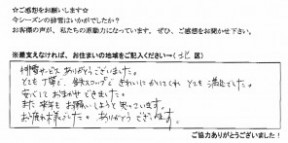 ☆ご感想をお願いします☆
今シーズンの排雪はいかがでしたか？
お客様の声が、私たちの原動力になっています。ぜひ、ご感想をお聞かせ下さい。
※差支えなければ、お住まいの地域をご記入ください→（北 区）
排雪サービス ありがとうございました。
とても丁寧で、きれいにして下さり とても 満足でした。
安心しておまかせできました。
また 来年も お願いしようと 思っています。
お疲れ様でした。 ありがとう ございます。
ご協力ありがとうございました！